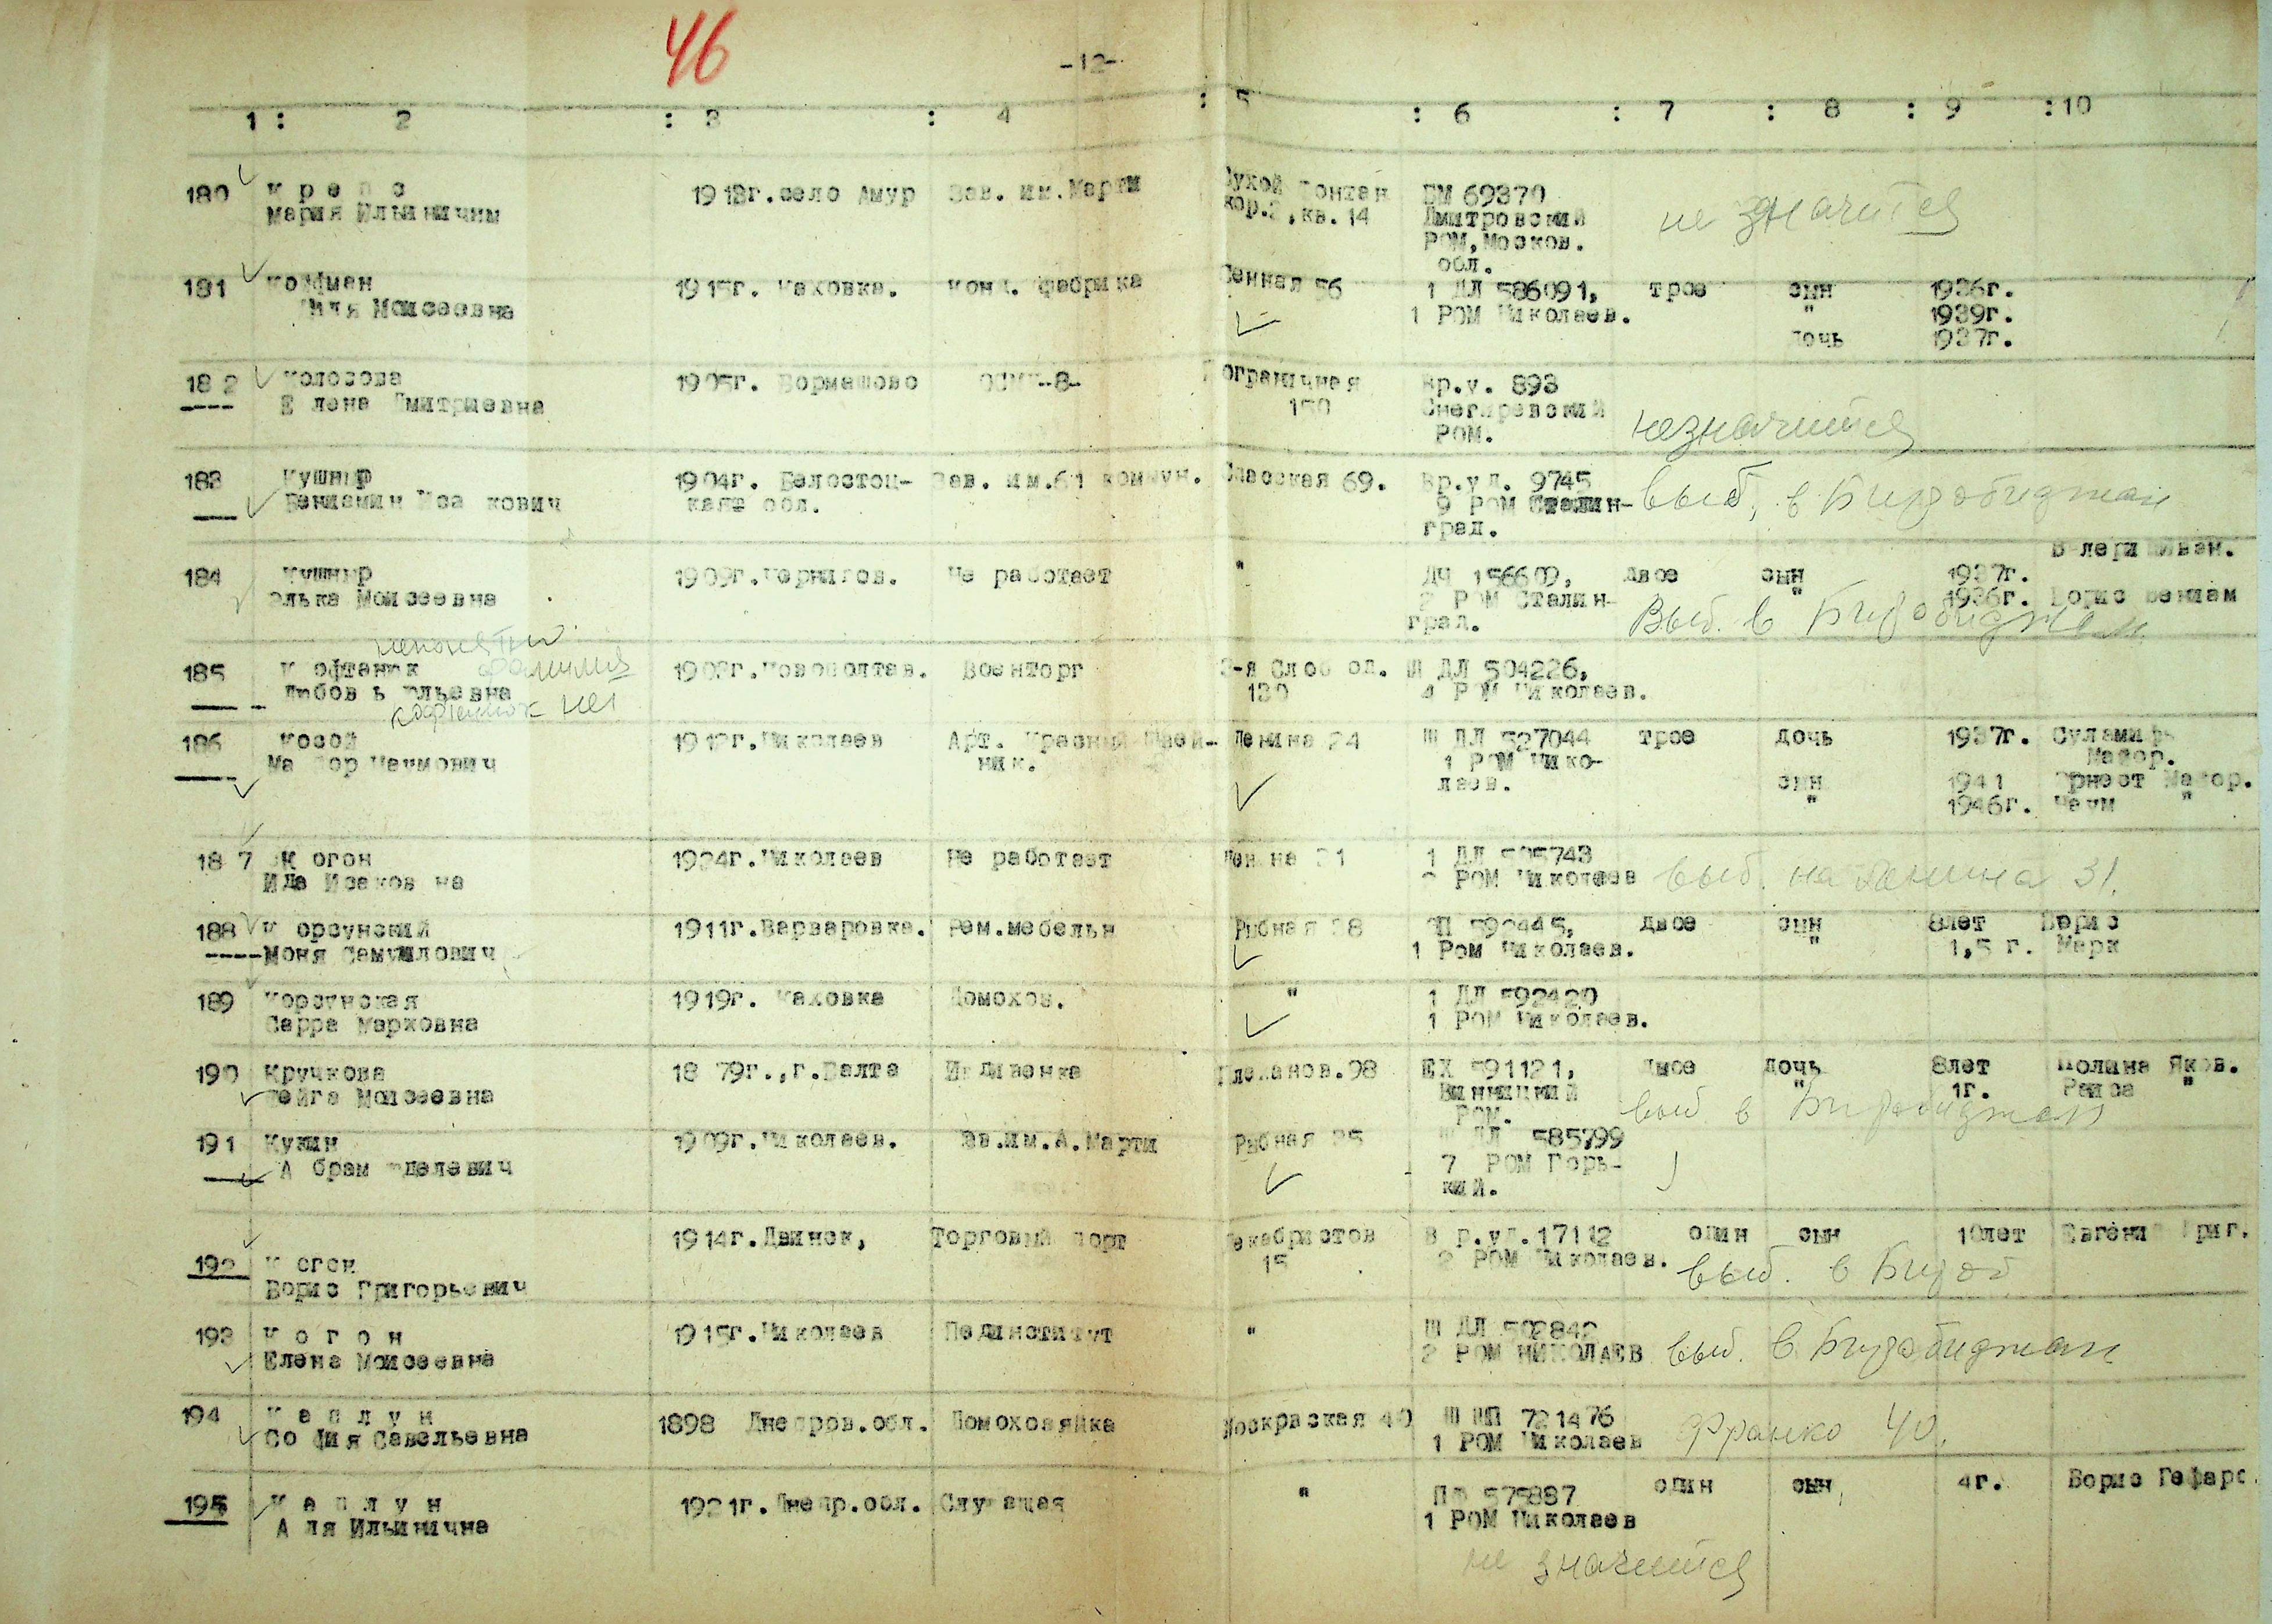 46
-12-
1 : 2 : 3 : 4 : 5 : 6 : 7 : 8 : 9 :10
180 К р е п с 1913г.село Амур Зав. им.Марти Сухой Фонтан БМ 69370
Мария Ильиничны кор.2,кв.14 Дмитровский не значится
РОМ,Москов.
обл.
181 Койфман 1915г. Каховка. Конд. фабрика Сенная 56 1 ДЛ 586091, трое сын 1936г.
Моисеевна 1 РОМ Николаев. " 1939г.
дочь 1937г.
182 Колосова 1905г. -8- Пограничная Вр.у. 893
Елена Дмитриевна 150 Снегиревский незначится
РОМ.
183 Кушнир 1904г. Белостоц- Зав. им.61 коммун. Спасская 69. Вр.уд. 9745
Вениамин Исакович кая обл. 9 РОМ Сталин- выб, в Биробиджан
град.
184 Кушнир 1909г.Чернигов. Не работает " ДЧ 156609, двое сын 1937г. Валери Ивен.
Моисеевна 2 РОМ Сталин- " 1936г. Борис Вениам
град. Выб. в Биробиджан
непонятна
185 К офтанюк фамилия 1903г.Новополтав. Военторг 3-я Слобод. Ш ДЛ 504226,
Любовь 130 4 РОМ Николаев.
нет
186 Косой 1912г.Николаев Арт. Красный Швей- Ленина 24 Ш ДЛ 527044 трое дочь 1937г. Суламифь
Майор Наумович ник. 1 РОМ Нико- Майор.
лаев. сын 1941 Эрнест Майор.
" 1946г. Наум "
187 К огон 1924г.Николаев Не работает Ленина 31 1 ДЛ 505743
Ида Исаковна 2 РОМ Николаев выб. на Ленина 31.
188 К орсунский 1911г.Варваровка. Рем.мебельн Рыбная 28 592445, двое сын 8лет Борис
Моня Самуилович 1 Ром Николаев. " 1,5 г. Марк
189 Корсунская 1919г. Каховка Домохоз. " 1 ДЛ 592420
Сарра Марковна 1 РОМ Николаев.
190 Кручкова 18 79г.,г.Балта Иждивенка Плеханов.98 ЕХ 591121, двое дочь 8лет Полина Яков.
Фейга Моисеевна Винницкий " 1г. Раиса "
РОМ. выб в Биробиджан
191 Кушин 1909г.Николаев. Зв.им.А.Марти Рыбная 25 Ш ДЛ 585799
А брам 7 РОМ Горь-
кий.
1914г.Двинск, Торговый порт Декабристов В р.уд.17112 один сын 10лет Евгений Григ.
192 К оген 15 2 РОМ Николаев. выб. в Бироб
Борис Григорьевич
193 К о г о н 1915г.Николаев Пединститут " Ш ДЛ 502842
Елена Моисеевна 2 РОМ НИКОЛАЕВ выб. в Биробиджан
194 К а п л у н 1898 Днепров.обл. Домохозяйка Москвоская 40 Ш ПП 721476
София Савельевна 1 РОМ Николаев Франко 40.
195 К а п л у н 1921г.Днепр.обл. Служащая " 575887 один сын 4г. Борис Гефарс.
А ля Ильинична 1 РОМ Николаев
не значится